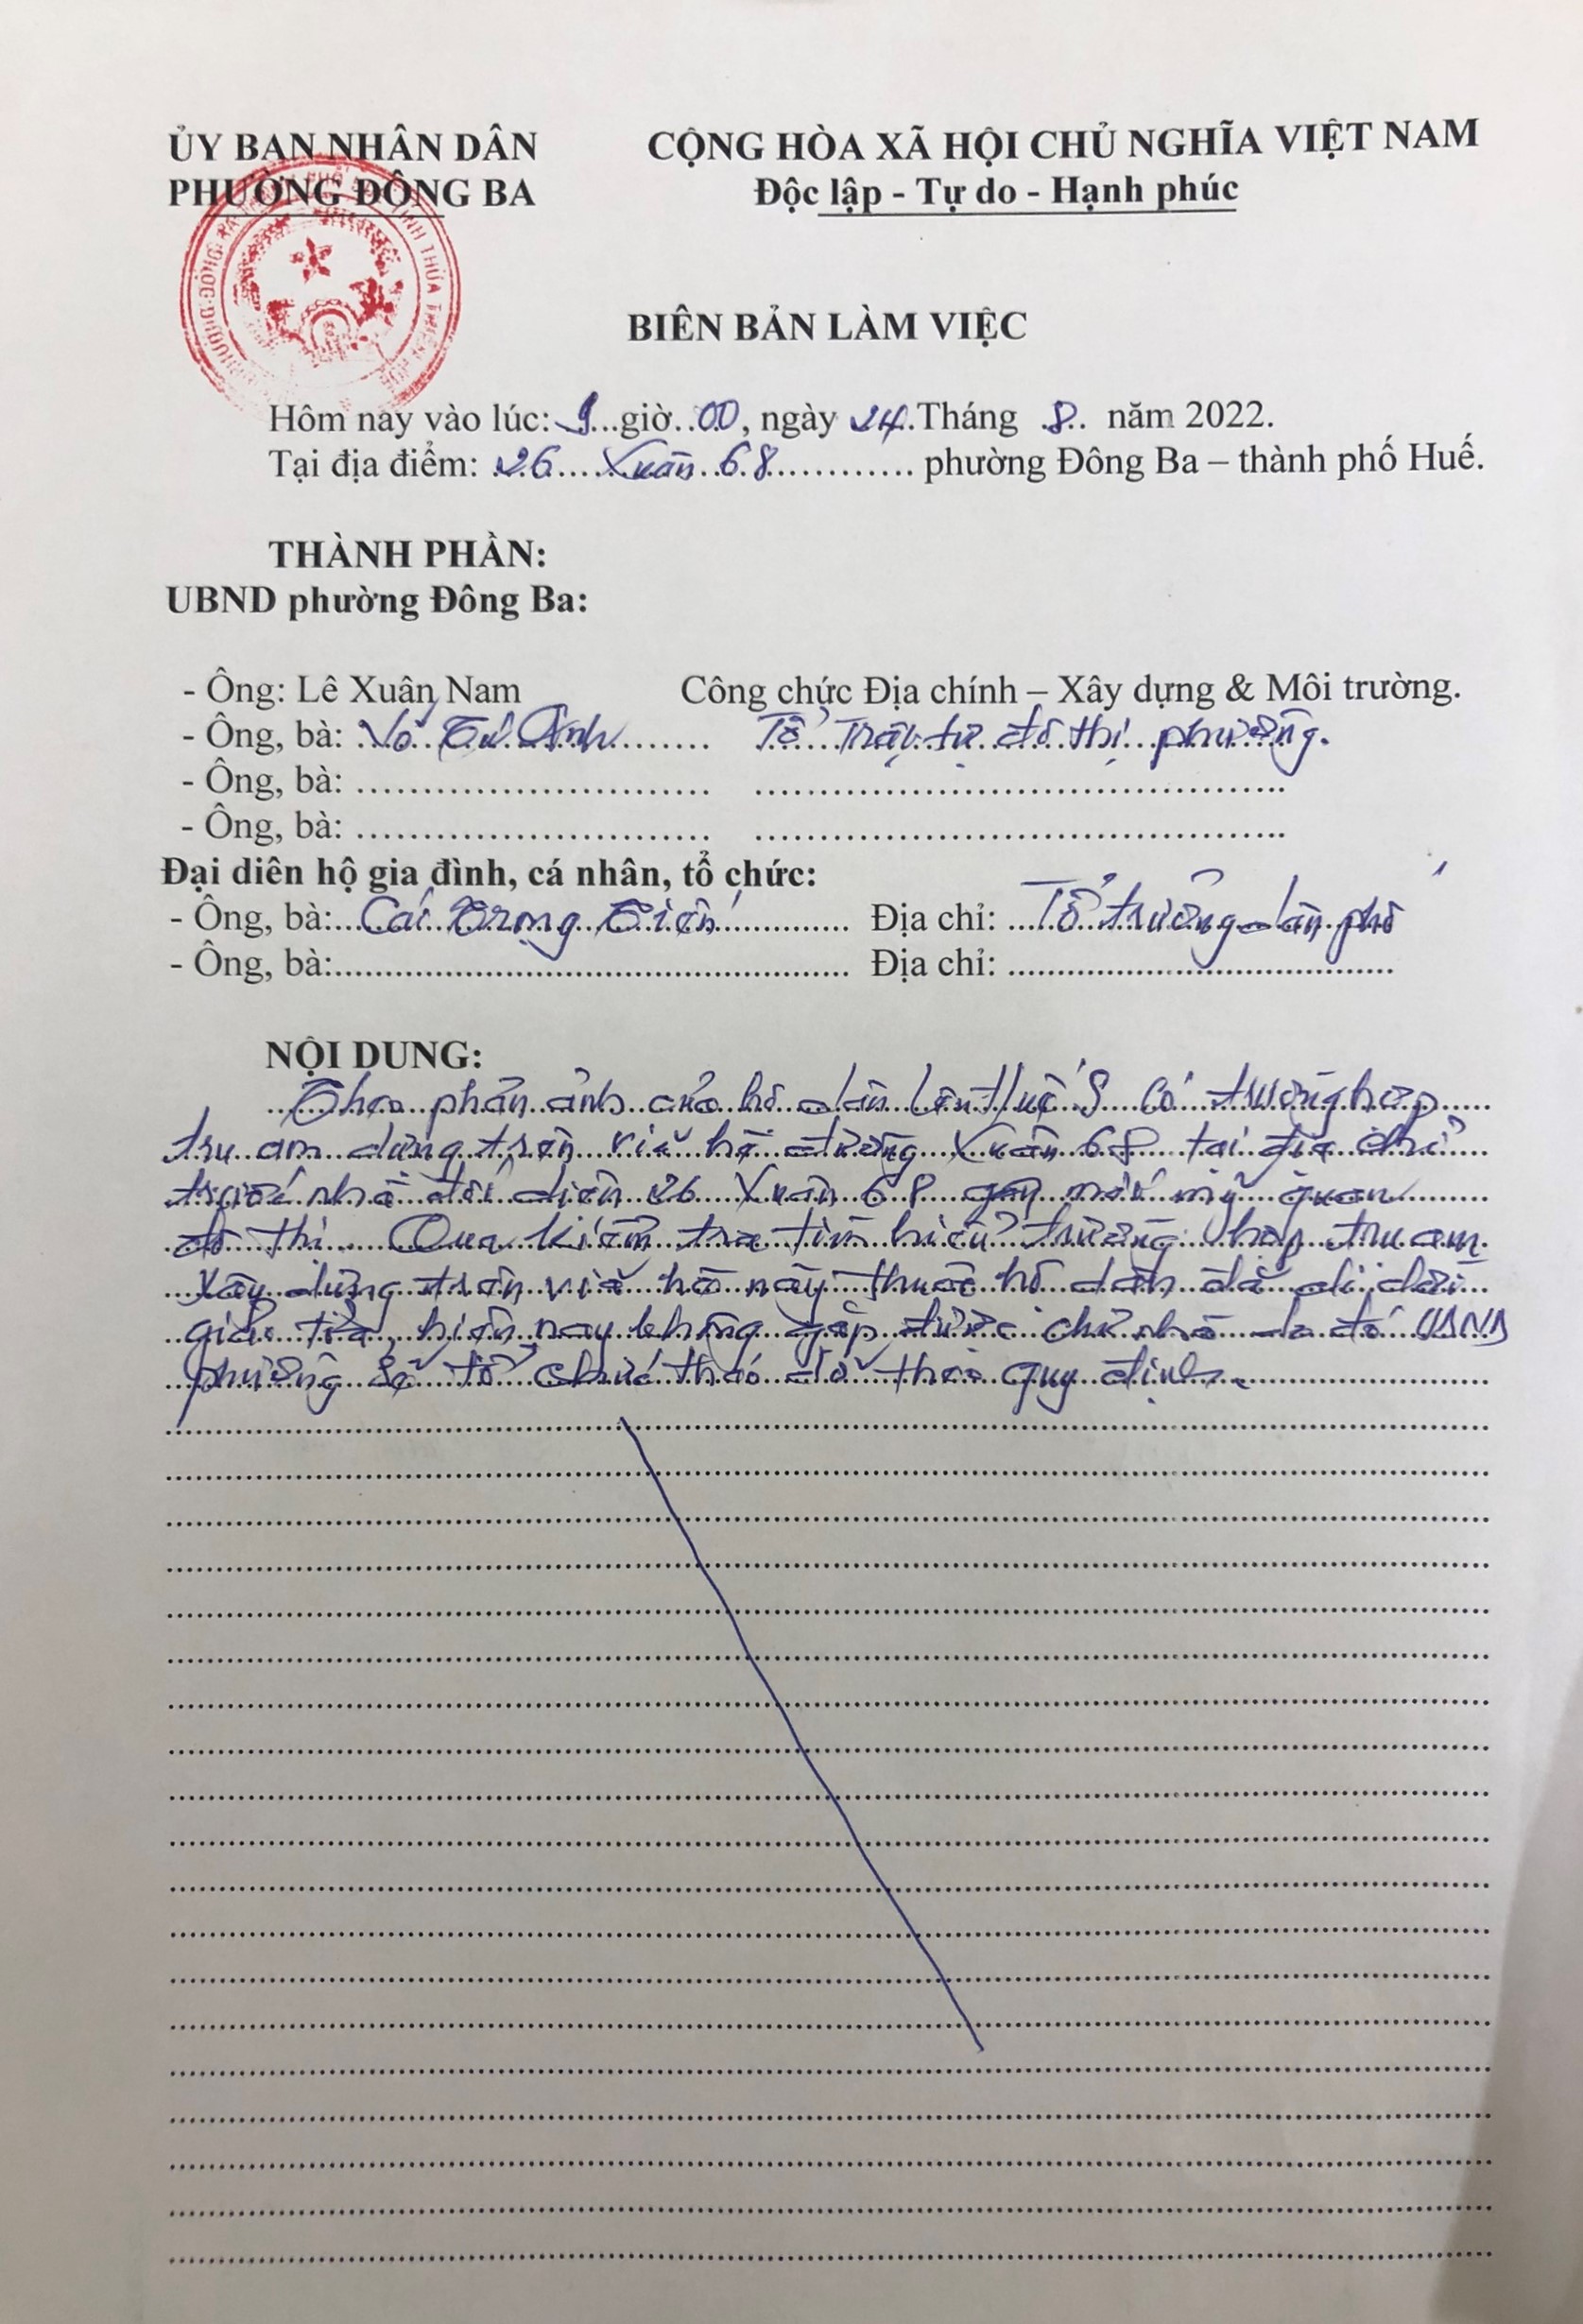 ỦY BAN NHÂN DÂN CỘNG HÒA XÃ HỘI CHỦ NGHĨA VIỆT NAM
PHƯỜNG ĐÔNG BA Độc lập - Tự do - Hạnh phúc
BIÊN BẢN LÀM VIỆC
Hôm nay vào lúc: 9 giờ 00, ngày 24 Tháng 8 năm 2022.
Tại địa điểm: 26 Xuân 68 phường Đông Ba – thành phố Huế.
THÀNH PHẦN:
UBND phường Đông Ba:
- Ông: Lê Xuân Nam Công chức Địa chính – Xây dựng & Môi trường.
- Ông, bà: Võ Anh Tổ Trật tự đô thị phường.
- Ông, bà:
- Ông, bà:
Đại diên hộ gia đình, cá nhân, tổ chức:
- Ông, bà: Cái Trọng Tiến Địa chỉ: Tổ trưởng dân phố
- Ông, bà: Địa chỉ:
NỘI DUNG:
Theo phản ảnh của hộ dân trên Huế S có trường hợp
trụ am dựng trên vỉa hè đường Xuân 68 tại địa chỉ
trước nhà đối diện 26 Xuân 68 gây mất mỹ quan
đô thị. Qua kiểm tra tìm hiểu trường hợp trụ am
xây dựng trên vỉa hè này thuộc hộ dân đã di dời
giải tỏa, hiện nay không gặp được chủ nhà do đó UBND
phường sẽ tổ chức tháo dỡ theo quy định.